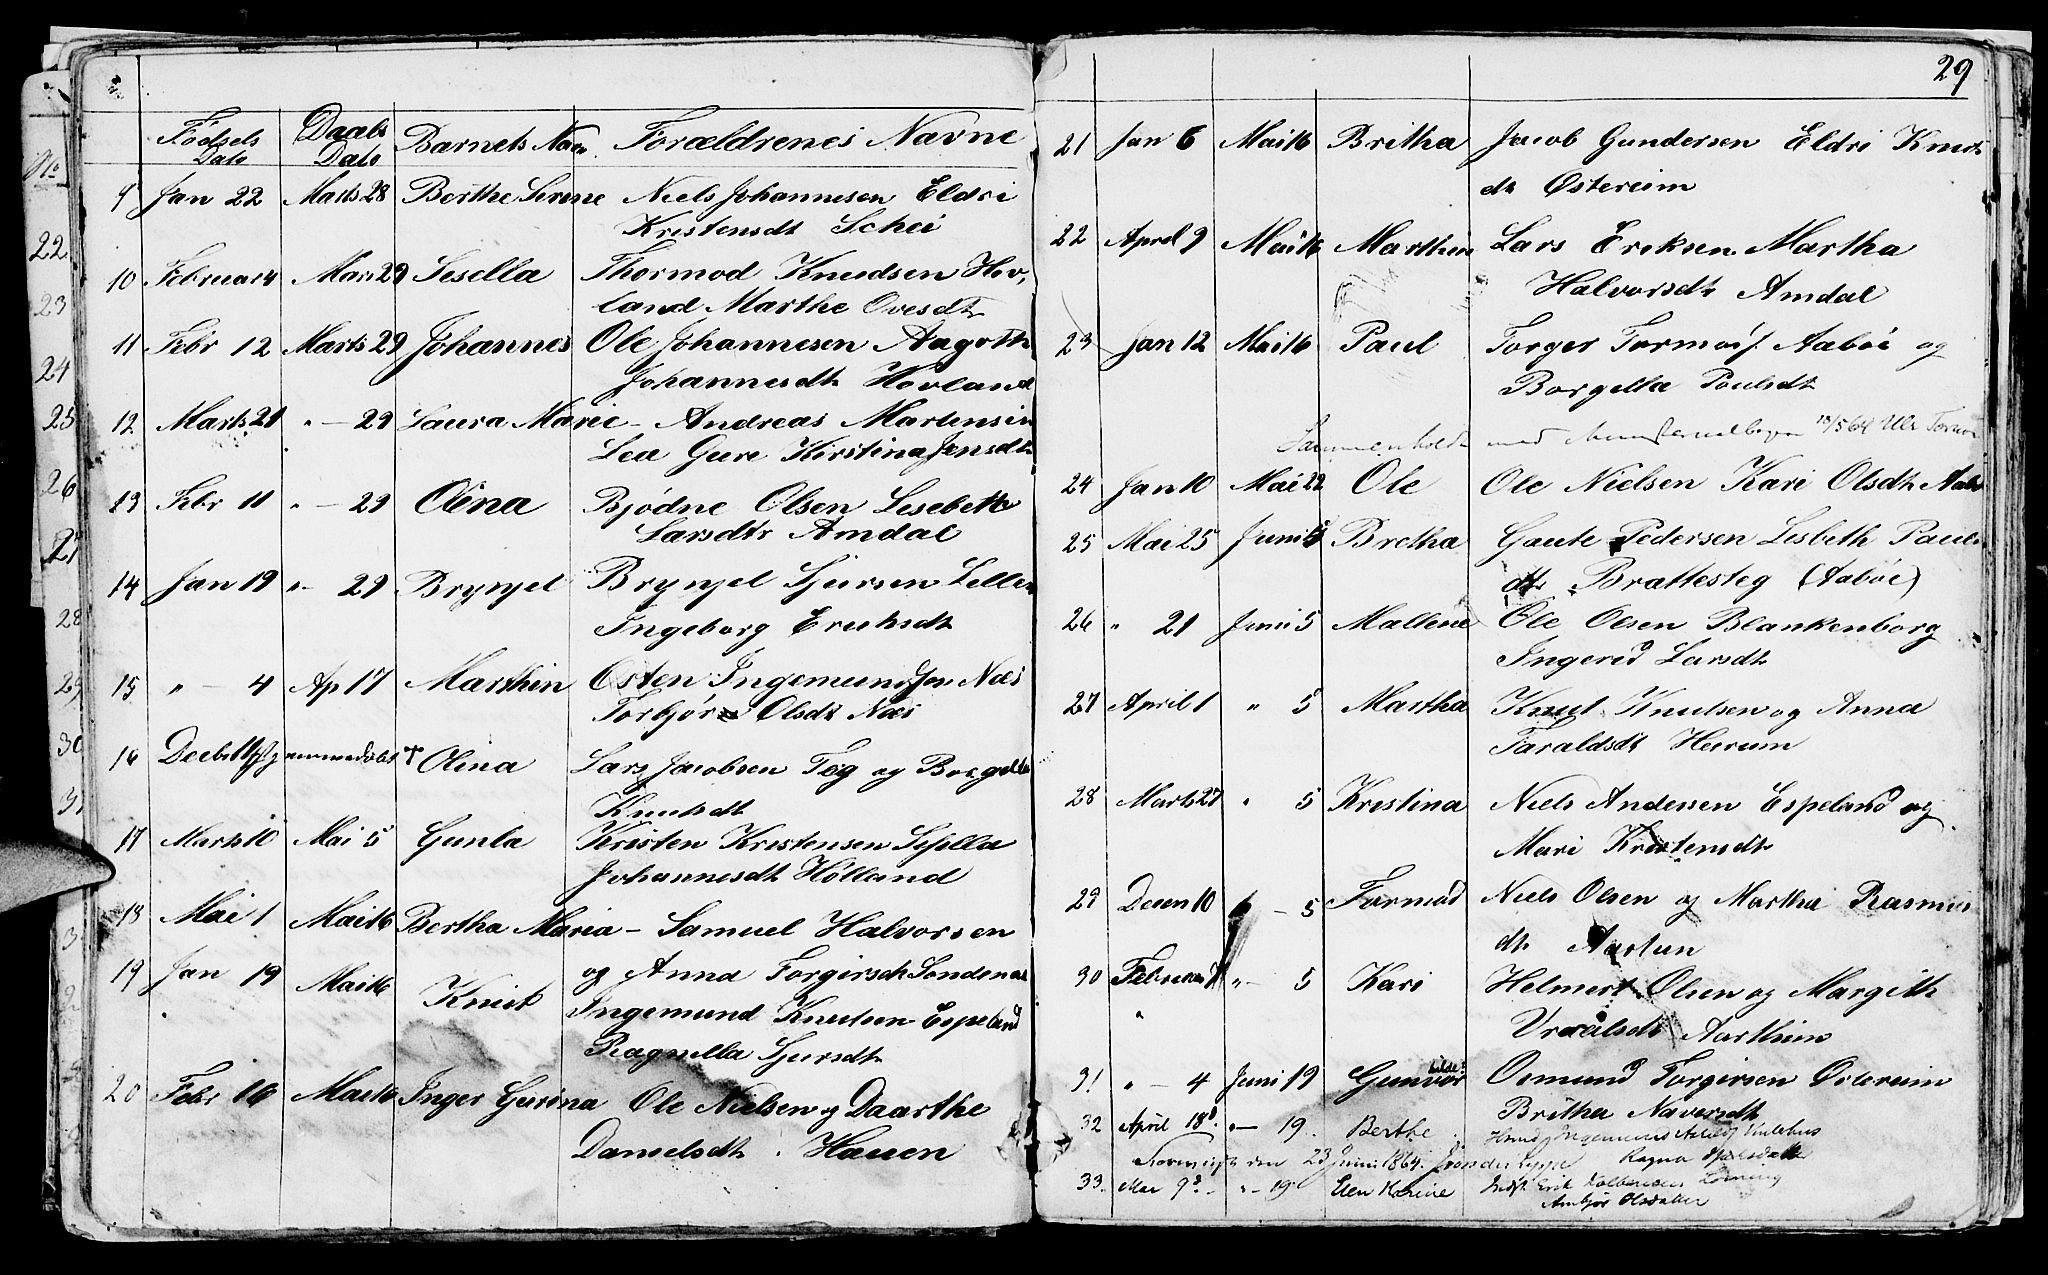 Fødsels Dato Daabs Dato Barnets Navn Forældrenes Navne
No
9 Jan 22 Marts 28 Berthe Serine Niels Johannesen Eldri
Kristensdt Schei
10 Februar 4 Mars 29 Sesella Thormod Knudsen Hov,
land Marthe Ovesdt
11 Febr 12 Marts 29 Johannes Ole Johannesen Aagoth
Johannesdt Hovland
12 Marts 21 " - 29 Laura Marie - Andreas Martensin
Lea Gure Kirstina Jensdt
13 Febr 11 " - 29 Olina Bjødne Olsen Lesebeth
Larsdtr Amdal
14 Jan 19 " - 29 Brynjel Brynjel Sjursen
Ingeborg Ericksdt
15 " - 4 Ap 17 Marthin Osten Ingemundsen Næs
Torbjør Olsdt Næs
16 Decbr 14 Hjemmedøbt + Olina Lars Jacobsen Teg og Borgella
Knudsdt
17 Marts 10 Mai 5 Gunla Kristen Kristensen Sesella
Johannesdt Hølland
18 Mai 1 Mai 16 Bertha Maria - Samuel Halvorsen
og Anna Torgirsdt Søndenaa
19 Jan 19 Mai 16 Knut Ingemund Knutsen Espeland
Ragnella Sjursdt
20 Febr 16 Mai 16 Inger Gurina Ole Nielsen og Daarthe
Danielsdt. Hauen
22
23
24
25
26
27
28
29
30
31
29
21 Jan 6 Mai 16 Britha Jacob Gundersen Eldri Knuts
dt Østereim
22 April 9 Mai 16 Marthin Lars Eriksen Martha
Halvorsdt Amdal
23 Jan 12 Mai 16 Paul Torger Tormods. Aabøe og
Borgella Poulsdt
Sammenholdt med 18/5 64
24 Jan 10 Mai 22 Ole Ole Nielsen Kari Olsdt
25 Mai 25 Juni 5 Bretha Gaute Pedersen Lisbeth Pauls
dt Brattesteg (Aabøe)
26 " 21 Juni 5 Mallene Ole Olsen Blankenborg
Ingerid Larsdt
27 April 1 " 5 Martha Knut Knutsen og Anna
Taraldsdt Herum
28 Marts 27 " 5 Kristina Niels Andersen Espeland og
Mari Kristensdt
29 Decen 10 " - 5 Tormod Niels Olsen og Martha Rasmus
dt Aartun
30 Februar " - 5 Kari Helmert Olsen og Margith
" Vraalsdt Aarthun
31 " - 4 Juni 19 Gunvør Osmund Torgirsen Østereim
Britha Naversdt
32 April 18. " - 19. Berthe Ingemund
den 23 Juni 1864. Ragna
33. Mai 9 " - 19 Elen Karine Erik
Anbjør Olsdatter